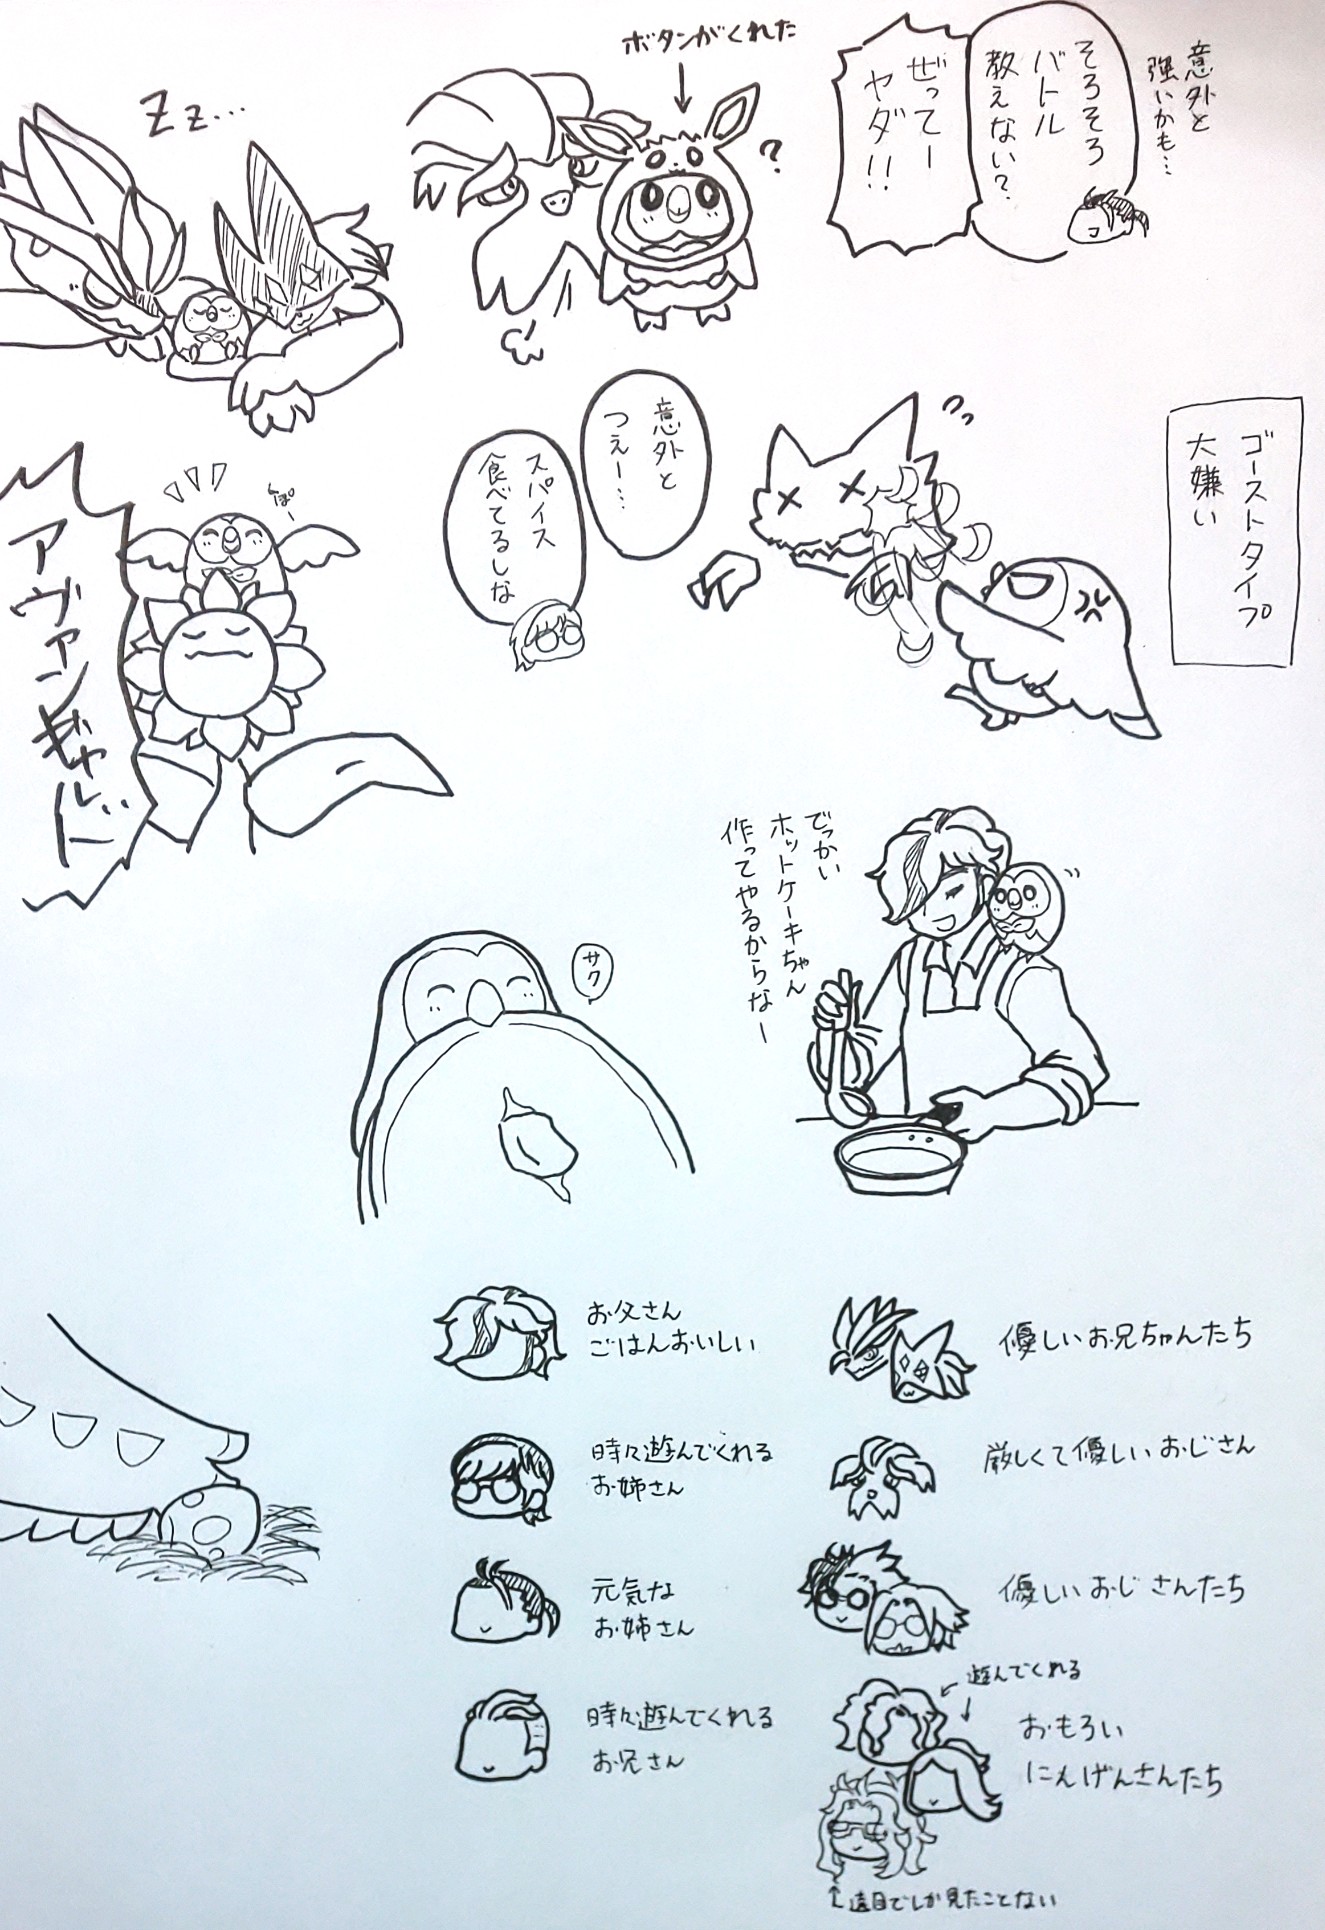 意外と
強いかも…
そろそろ
バトル
教えない?
ぜってー
ヤダ!!
ボタンがくれた
?
Zz…
ゴーストタイプ
大嫌い
意外と
つえー…
スパイス
食べてるしな
ぽー
アヴァンギャルド
でっかい
ホットケーキちゃん
作ってやるからなー
サク
お父さん
ごはんおいしい
時々遊んでくれる
お姉さん
元気な
お姉さん
時々遊んでくれる
お兄さん
優しいお兄ちゃんたち
厳しくて優しいおじさん
優しいおじさんたち
遊んでくれる
おもろい
にんげんさんたち
遠目でしか見たことない